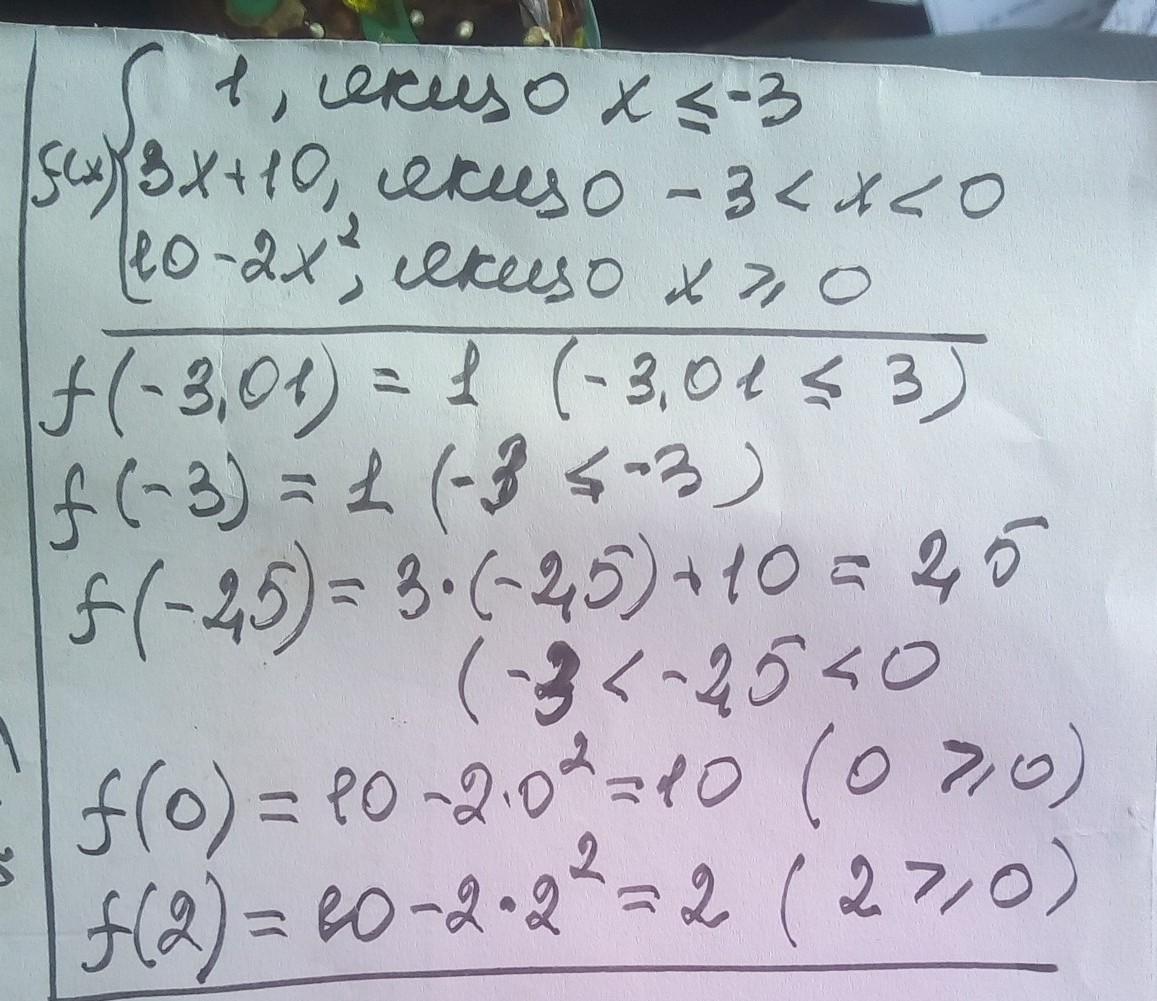 1, якщо x ≤ -3
f(x) { 3x+10, якщо -3 < x < 0
10-2x², якщо x ≥ 0
f(-3,01) = 1 (-3,01 ≤ 3)
f(-3) = 1 (-3 ≤ -3)
f(-2,5) = 3·(-2,5)+10 = 2,5
(-3 < -2,5 < 0
f(0) = 10-2·0² = 10 (0 ≥ 0)
f(2) = 10-2·2² = 2 (2 ≥ 0)